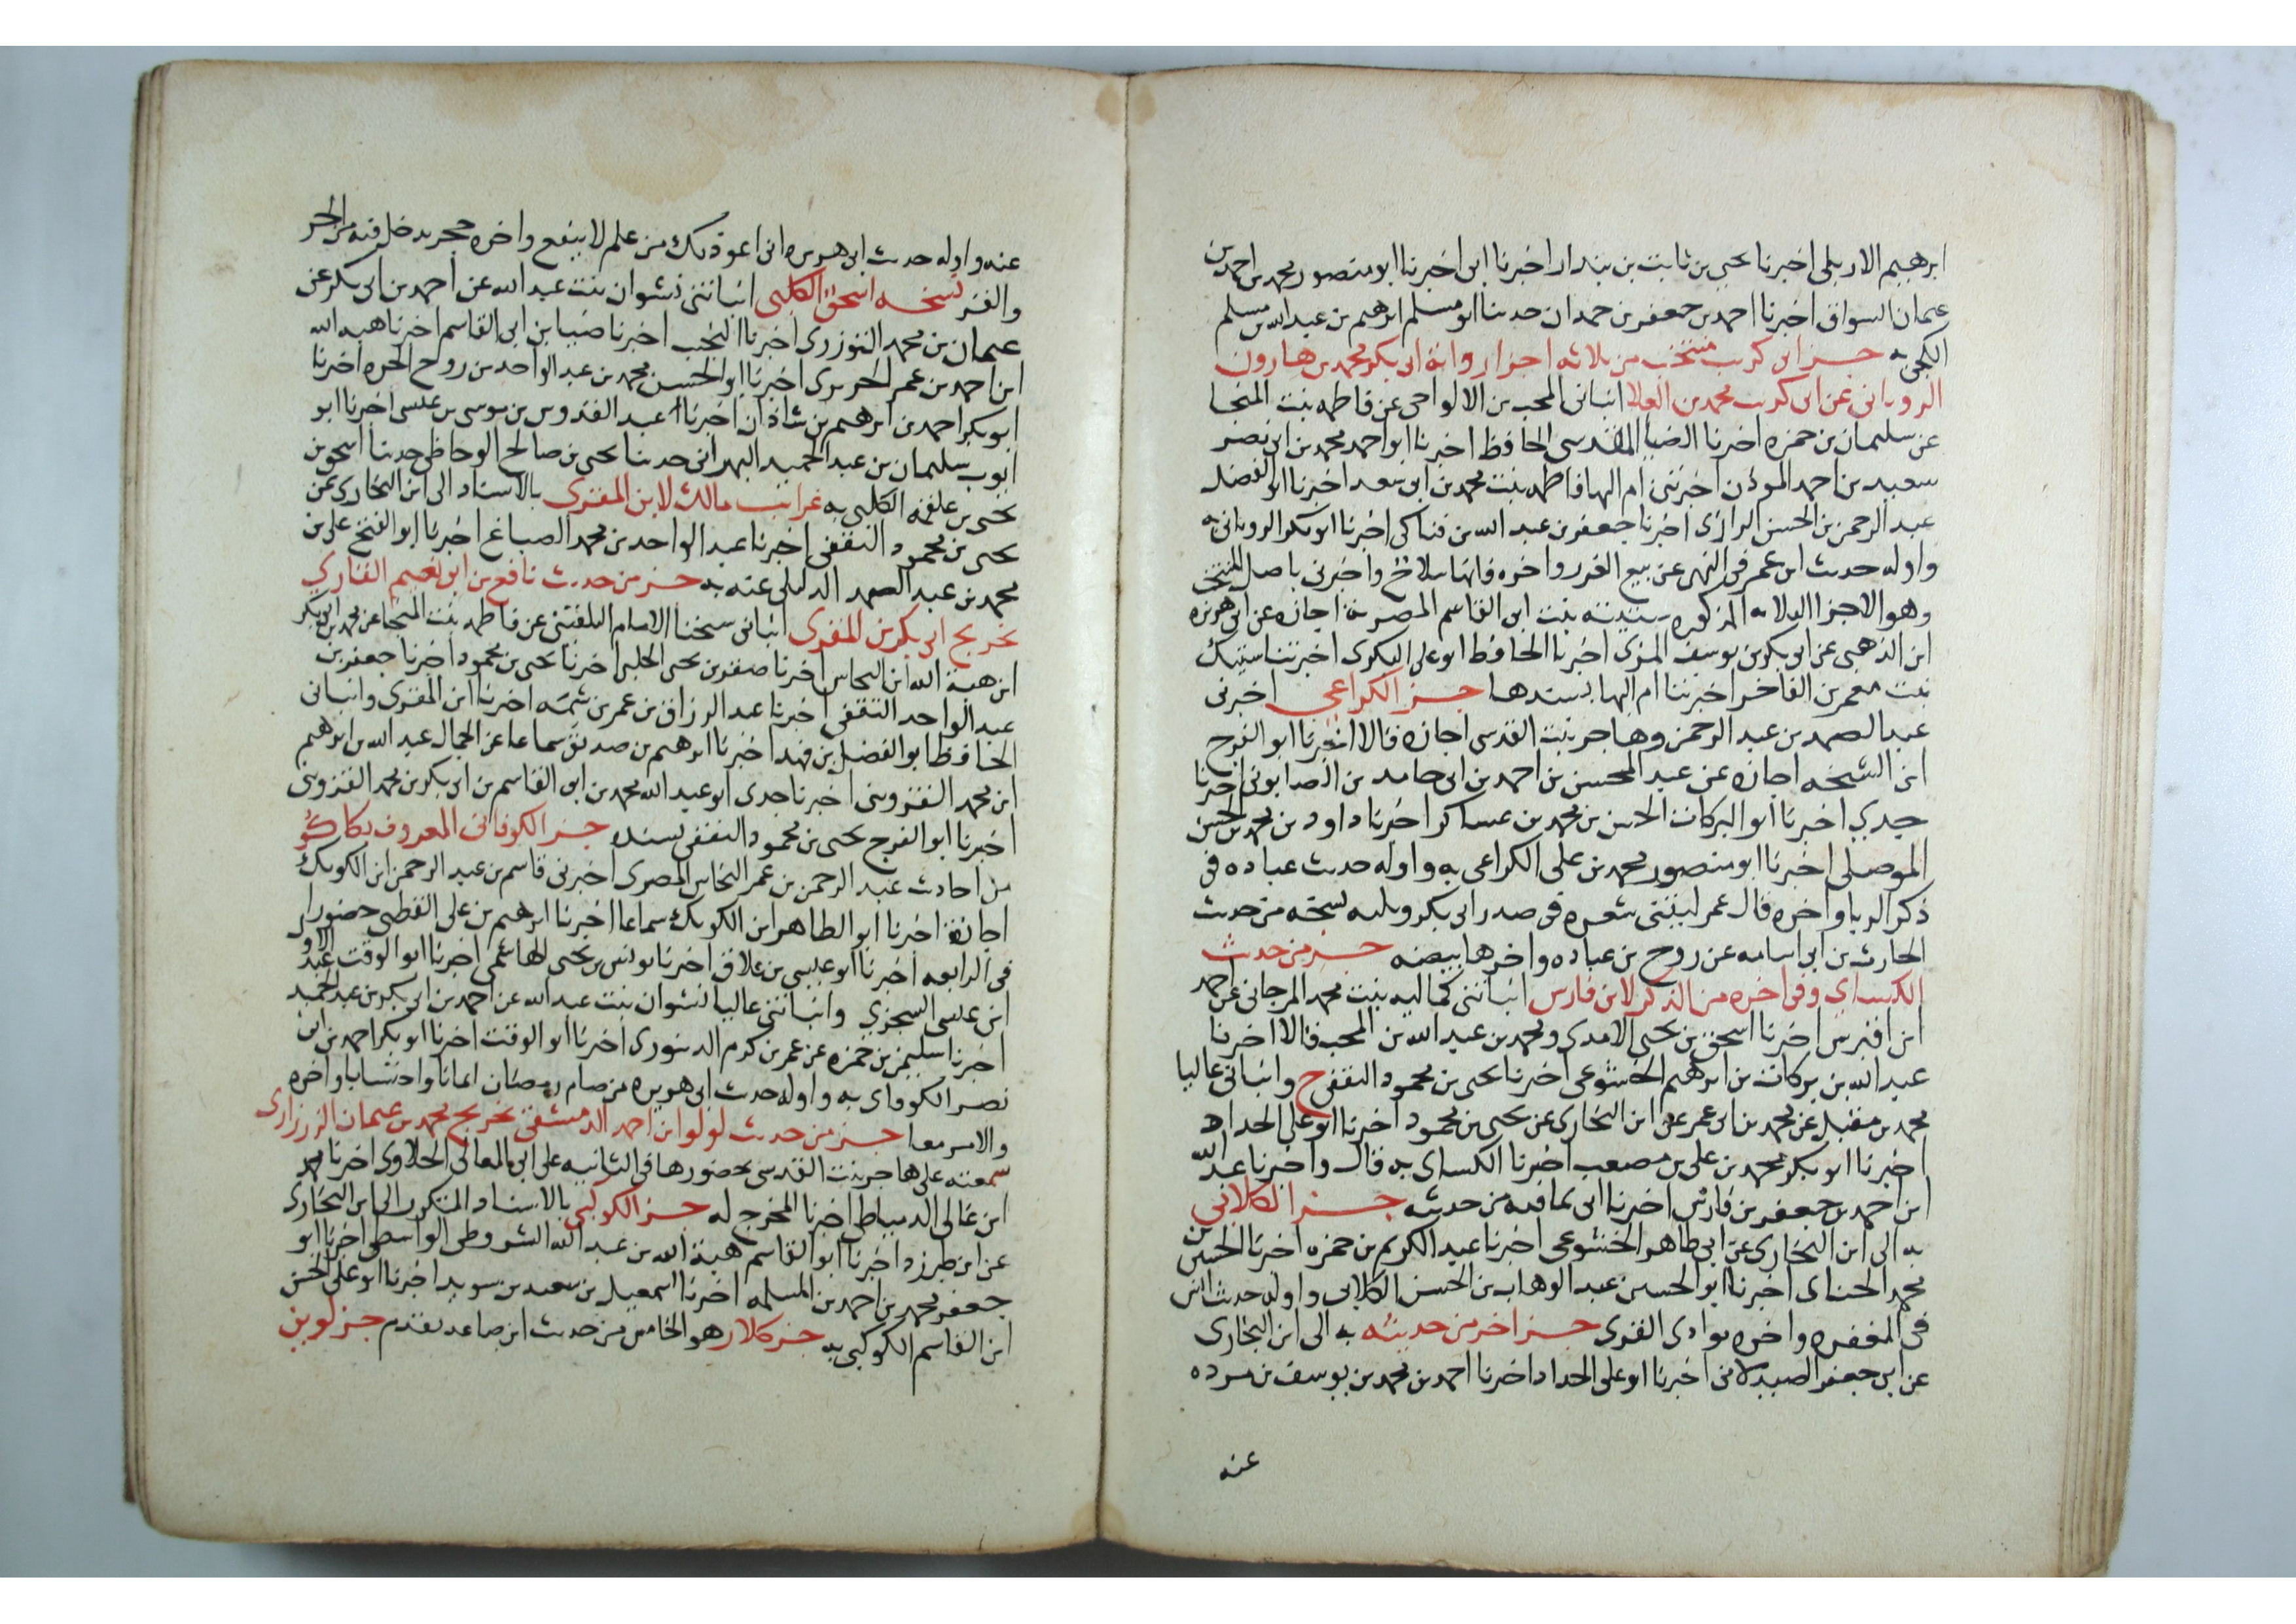 ابرهيم الاربلى اخبرنا يحيى بن ثابت بن بندار اخبرنا ابى اخبرنا ابو منصور محمد بن احمد بن
عثمان السواق اخبرنا احمد بن جعفر بن حمدان حدثنا ابو مسلم ابرهيم بن عبد الله بن مسلم
الكجى به جزء ابى كريب منتخب من ثلاثه اجزا رواية ابى بكر محمد بن هارون
الرويانى عن ابى كريب محمد بن العلا انبانى المحب بن الالواحى عن فاطمه بنت المنجا
عن سليمان بن حمزه اخبرنا الضيا المقدسى الحافظ اخبرنا ابو احمد محمد بن ابى نصر
سعيد بن احمد الموذن اخبرتنى ام البها فاطمه بنت محمد بن ابى سعد اخبرنا ابو الفضل
عبد الرحمن بن الحسن الرازى اخبرنا جعفر بن عبد الله بن فناكى اخبرنا ابو بكر الرويانى به
واوله حديث ابن عمر فى النهى عن بيع الغرر واخره فانها سلاخ واخبرنى باصل المنتخب
وهو الاجزا الثلاثه المذكوره ستيته بنت ابى القاسم المصرية اجازه عن ابى هريره
ابن الذهبى عن ابى بكر بن يوسف المزى اخبرنا الحافظ ابو على البكرى اخبرتنا ستيك
بنت معمر بن الفاخر اخبرتنا ام البها بسندها جزء الكراعى اخبرنى
عبد الصمد بن عبد الرحمن وهاجر بنت القدسى اجازه قالا اخبرنا ابو الفرج
ابن الشيخه اجازه عن عبد المحسن بن احمد بن ابى حامد بن الصابونى اخبرنا
جدي اخبرنا ابو البركات الحسن بن محمد بن عساكر اخبرنا داود بن محمد بن الحسن
الموصلى اخبرنا ابو منصور محمد بن على الكراعى به واوله حديث عباده فى
ذكر الربا واخره قال عمر ليتنى شعره فى صدر ابى بكر ويليه نسخه من حديث
الحارث بن ابى اسامه عن روح بن عباده واخرها ببيضه جزء من حديث
الكسائي وفى اخره من الذكر لابن فارس انباتنى كماليه بنت محمد المرجانى عن احمد
ابن اقبرس اخبرنا اسحق بن يحيى الامدى ومحمد بن عبد الله بن المحب قالا اخبرنا
عبد الله بن بركات بن ابرهيم الخشوعى اخبرنا يحيى بن محمود الثقفى ح وانبانى عاليا
محمد بن مقبل عن محمد بن ابى عمر عن ابن البخارى عن يحيى بن محمود اخبرنا ابو على الحداد
اخبرنا ابو بكر محمد بن على بن مصعب اخبرنا الكساى به قال واخبرنا عبد الله
ابن احمد بن جعفر بن فارس اخبرنا ابى بما فيه من حديثه جزء الكلابي
به الى ابن البخارى عن ابى طاهر الخشوعى اخبرنا عبد الكريم بن حمزه اخبرنا الحسين بن
محمد الحناى اخبرنا ابو الحسين عبد الوهاب بن الحسن الكلابى واوله حديث انس
فى المغفره واخره بوادى القرى جزء اخر من حديثه به الى ابن البخارى
عن ابى جعفر الصيدلانى اخبرنا ابو على الحداد اخبرنا احمد بن محمد بن يوسف بن مرده
عنه
عنه واوله حديث ابى هريره انى اعوذ بك من علم لا ينفع واخره حجر يدخل فيه من الحر
والقز نسخه اسحق الكلبى انباتنى نشوان بنت عبد الله عن احمد بن ابى بكر عن
عثمان بن محمد التوزرى اخبرنا النجيب اخبرنا ضيا بن ابى القاسم اخبرنا هبه الله
ابن احمد بن عمر الحريرى اخبرنا ابو الحسن محمد بن عبد الواحد بن زوج الحره اخبرنا
ابو بكر احمد بن ابرهيم بن شاذان اخبرنا عبد القدوس بن موسى بن عيسى اخبرنا ابو
ايوب سليمان بن عبد الحميد البهرانى حدثنا يحيى بن صالح الوحاظى حدثنا اسحق بن
يحيى بن علقمه الكلبى به غرائب مالك لابن المقرى بالاسناد الى ابن البخارى عن
يحيى بن محمود الثقفى اخبرنا عبد الواحد بن محمد الصباغ اخبرنا ابو الفتح على بن
محمد بن عبد الصمد الدليلى عنه به جزء من حديث نافع بن ابى نعيم القاري
تخريج ابى بكر بن المقرى انبانى شيخنا الامام البلقينى عن فاطمه بنت المنجا عن محمد بن ابى بكر
ابن هبة الله ابن النحاس اخبرنا صقر بن يحيى الحلبى اخبرنا يحيى بن محمود اخبرنا جعفر بن
عبد الواحد الثقفى اخبرنا عبد الرزاق بن عمر بن شمه اخبرنا ابن المقرى وانبانى
الحافظ ابو الفضل بن فهد اخبرنا ابرهيم بن صديق سماعا عن الجمال عبد الله بن ابرهيم
ابن محمد القزوينى اخبرنا جدى ابو عبد الله محمد بن ابى القاسم بن ابى بكر بن محمد القزوينى
اخبرنا ابو الفرج يحيى بن محمود الثقفى بسنده جزء الكوفانى المعروف بكاكو
من احاديث عبد الرحمن بن عمر النحاس المصرى اخبرنى قاسم بن عبد الرحمن ابن الكويك
اجازة اخبرنا ابو الطاهر ابن الكويك سماعا اخبرنا ابرهيم بن على القطبى حضورا
فى الرابعه اخبرنا ابو عيسى بن علاق اخبرنا يونس بن يحيى الهاشمى اخبرنا ابو الوقت عبد الاول
ابن عيسى السجزي وانباتنى عاليا نشوان بنت عبد الله عن احمد بن ابى بكر بن عبد الحميد
اخبرنا سليمن بن حمزه عن عمر بن كرم الدينورى اخبرنا ابو الوقت اخبرنا ابو بكر احمد بن ابى
نصر الكوفاى به واوله حديث ابى هريره من صام رمضان ايمانا واحتسابا واخره
والامر معا جزء من حديث لولو ابن احمد الدمشقى تخريج محمد بن عثمان الزرزارى
سمعته على هاجر بنت القدسى بحضورها فى الثانيه على ابى المعالى الحلاوى اخبرنا محمد
ابن غالى الدمياطى اخبرنا المخرج له جزء الكوكبى بالاسناد المذكور الى ابن البخارى
عن ابن طبرزد اخبرنا ابو القاسم هبة الله بن عبد الله الشروطى الواسطى اخبرنا ابو
جعفر محمد بن احمد بن المسلمه اخبرنا اسمعيل بن سعيد بن سويد اخبرنا ابو على الحسن
ابن القاسم الكوكبى به جزء كلار هو الخامس من حديث ابن صاعد تقدم جزء لوين